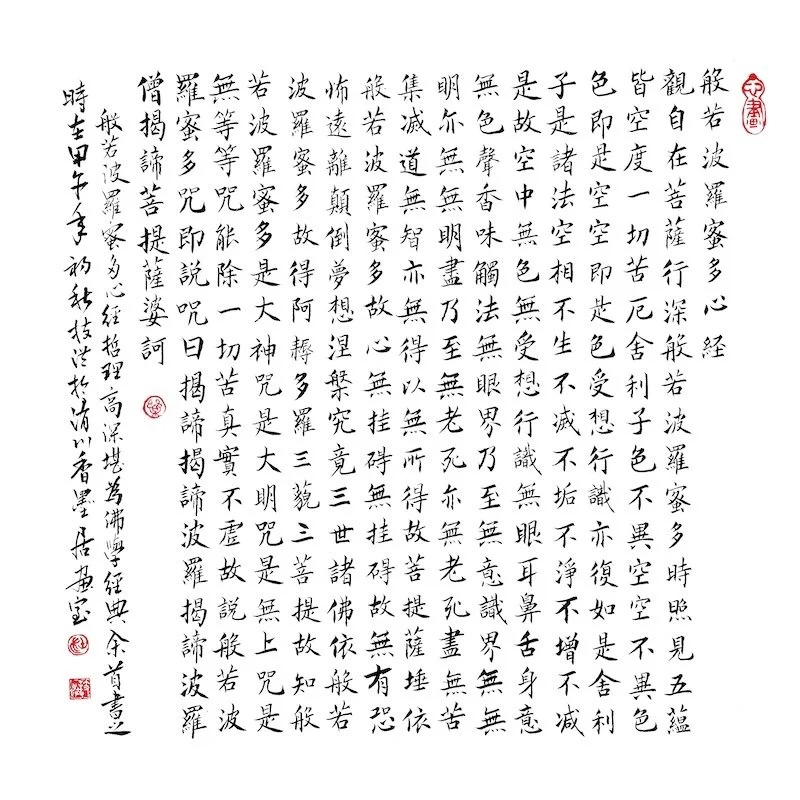 般若波羅蜜多心経
觀自在菩薩行深般若波羅蜜多時照見五蘊
皆空度一切苦厄舍利子色不異空空不異色
色即是空空即是色受想行識亦復如是舍利
子是諸法空相不生不滅不垢不淨不增不减
是故空中無色無受想行識無眼耳鼻舌身意
無色聲香味觸法無眼界乃至無意識界無無
明亦無無明盡乃至無老死亦無老死盡無苦
集滅道無智亦無得以無所得故菩提薩埵依
般若波羅蜜多故心無挂碍無挂碍故無有恐
怖遠離顛倒夢想涅槃究竟三世諸佛依般若
波羅蜜多故得阿耨多羅三藐三菩提故知般
若波羅蜜多是大神咒是大明咒是無上咒是
無等等咒能除一切苦真實不虛故説般若波
羅蜜多咒即説咒曰揭諦揭諦波羅揭諦波羅
僧揭諦菩提薩婆訶
般若波羅蜜多心經哲理高深堪為佛學經典余首書之
時在甲午年初秋枝洪於清川香墨居畫室